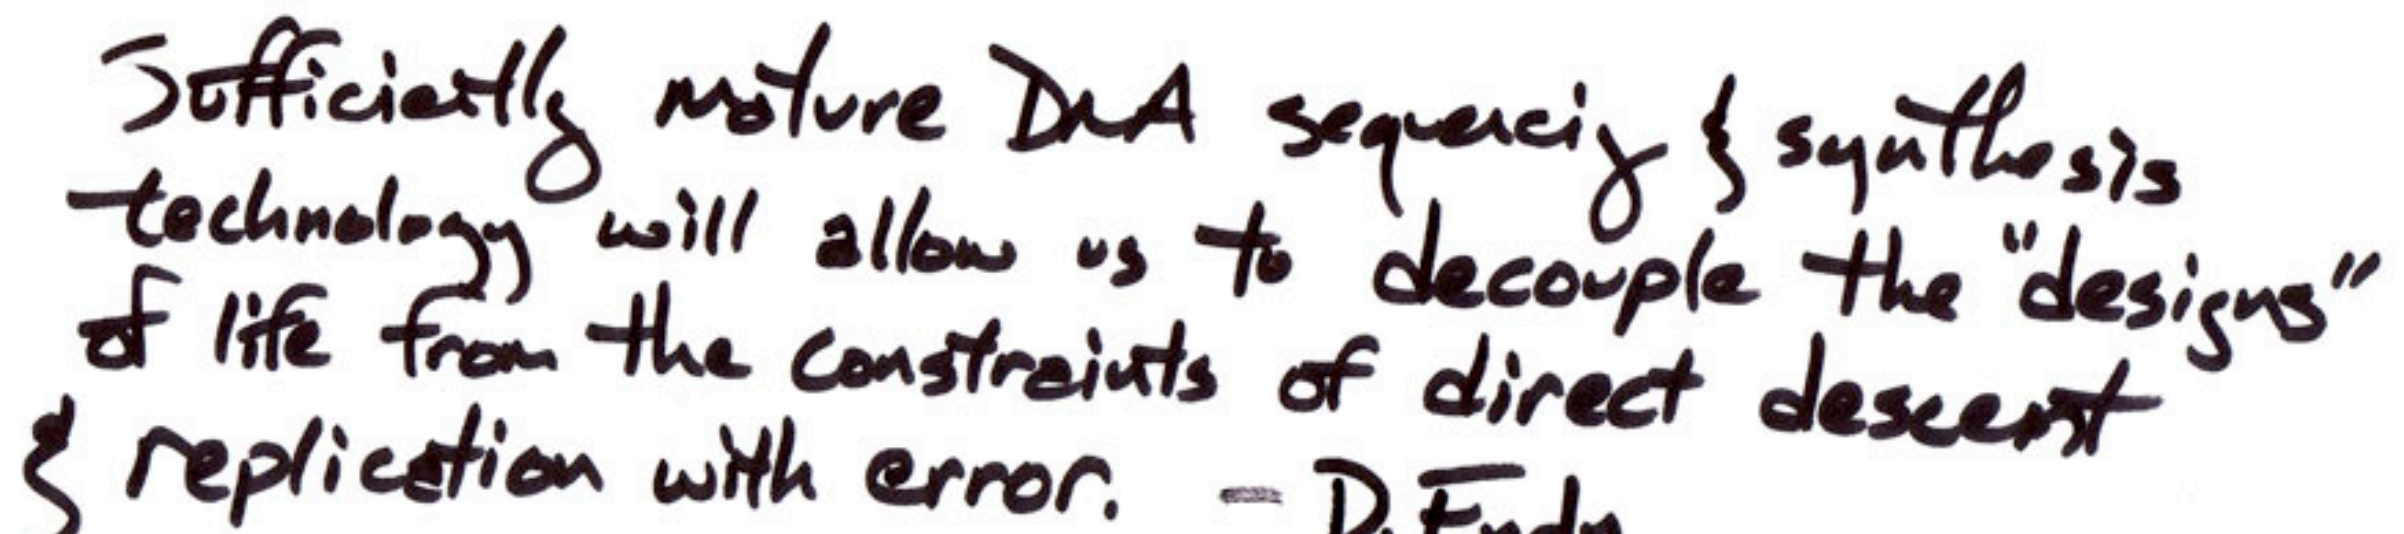 Sufficiently mature DNA sequencing & synthesis
technology will allow us to decouple the "designs"
of life from the constraints of direct descent
& replication with error. - D. Endy